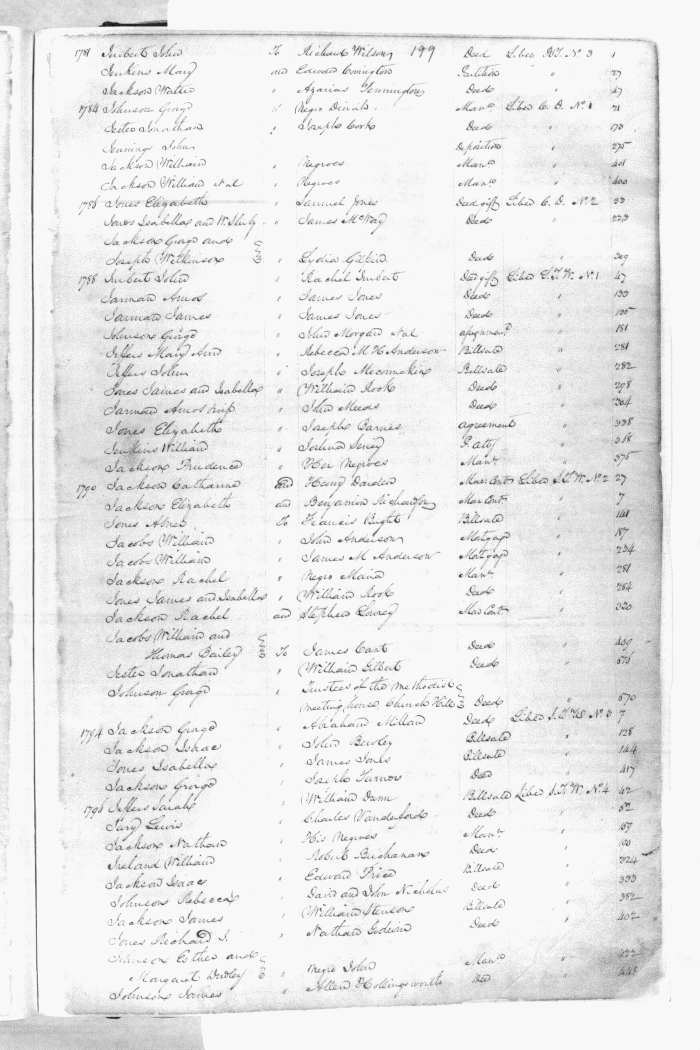 199
1781 Imbert John To Richard Wilson Deed Liber No 3 1
Jenkins Mary and Edward Covington Partition " 27
Jackson Walter " Azarias Pennington Deed " 47
1784 Johnson Georg " Negro Dinah Man. Liber C. D. No 1 21
Jester Jonathan " Joseph Cook Deed " 170
Jennings John Deposition " 275
Jackson William " Negroes Man. " 401
Jackson William " Negroes Man. " 400
1786 Jones Elizabeth " Samuel Jones Deed gift Liber C. D. No 2 33
Jones Isabella and " James McVay Deed " 223
Jackson Georg and
Joseph Wilkinson " Lydia Gilbird Deed " 309
1788 Imbert John " Rachel Imbert Deed gift Liber S.T.W. No 1 47
Jarman Amos " James Jones Deed " 133
Jarman James " James Jones Deed " 135
Johnson Georg " John Morgan assignment " 181
Jeffers Mary Ann " Rebecca M. H. Anderson Billsale " 281
Jeffers John " Joseph Mccormekin Billsale " 282
Jones James and Isabella " William Rook Deed " 298
Jarman Amos " John Meeds Deed " 304
Jones Elizabeth " Joseph Barnes agreement " 338
Jenkins William " Joshua Seney " 318
Jackson Prudence " Her Negroes Man. " 375
1790 Jackson Catharine and Henry Darden Mar Cont Liber S.T.W. No 2 27
Jackson Elizabeth and Benjamin Mar Cont " 7
Jones Abner To Francis Bright Billsale " 141
Jacobs William " John Anderson Mortgag " 187
Jacobs William " James M Anderson Mortgag " 234
Jackson Rachel " Negro Maria Man. " 281
Jones James and Isabella " William Rook Deed " 284
Jackson Rachel and Stephen Lowrey Mar Cont " 320
Jacobs William and
Thomas Bailey To James Cant Deed "
Jester Jonathan " William Gilbert Deed "
Johnson Georg " Trustees of the Methodist
meeting house Church Hill Deed " 570
1794 Jackson Georg " Abraham Millan Deed Liber S.T.W. No 3 7
Jackson Isaac " John Bewley Billsale " 128
Jones Isabella " James Jones Billsale " 144
Jackson George " Joseph Turner Deed " 417
1796 Jeffers Sarah " William Dunn Billsale Liber S.T.W. No 4 42
Jury Lewis " Charles Vanderford Deed " 52
Jackson Nathan " His Negroes Man. " 159
Ireland William " Robert Buchanan Deed "
Jackson Isaac " Edward Price Billsale " 224
Johnson Rebecca " David and John Nicholus Deed " 333
Jackson James " William Stenson Billsale " 382
Jones Richard I. " Nathan Godwin Deed " 402
Johnson Esther and
Margaret Dudley " Negro John Man. " 422
Johnson James " Allen Hollingsworth Deed " 448